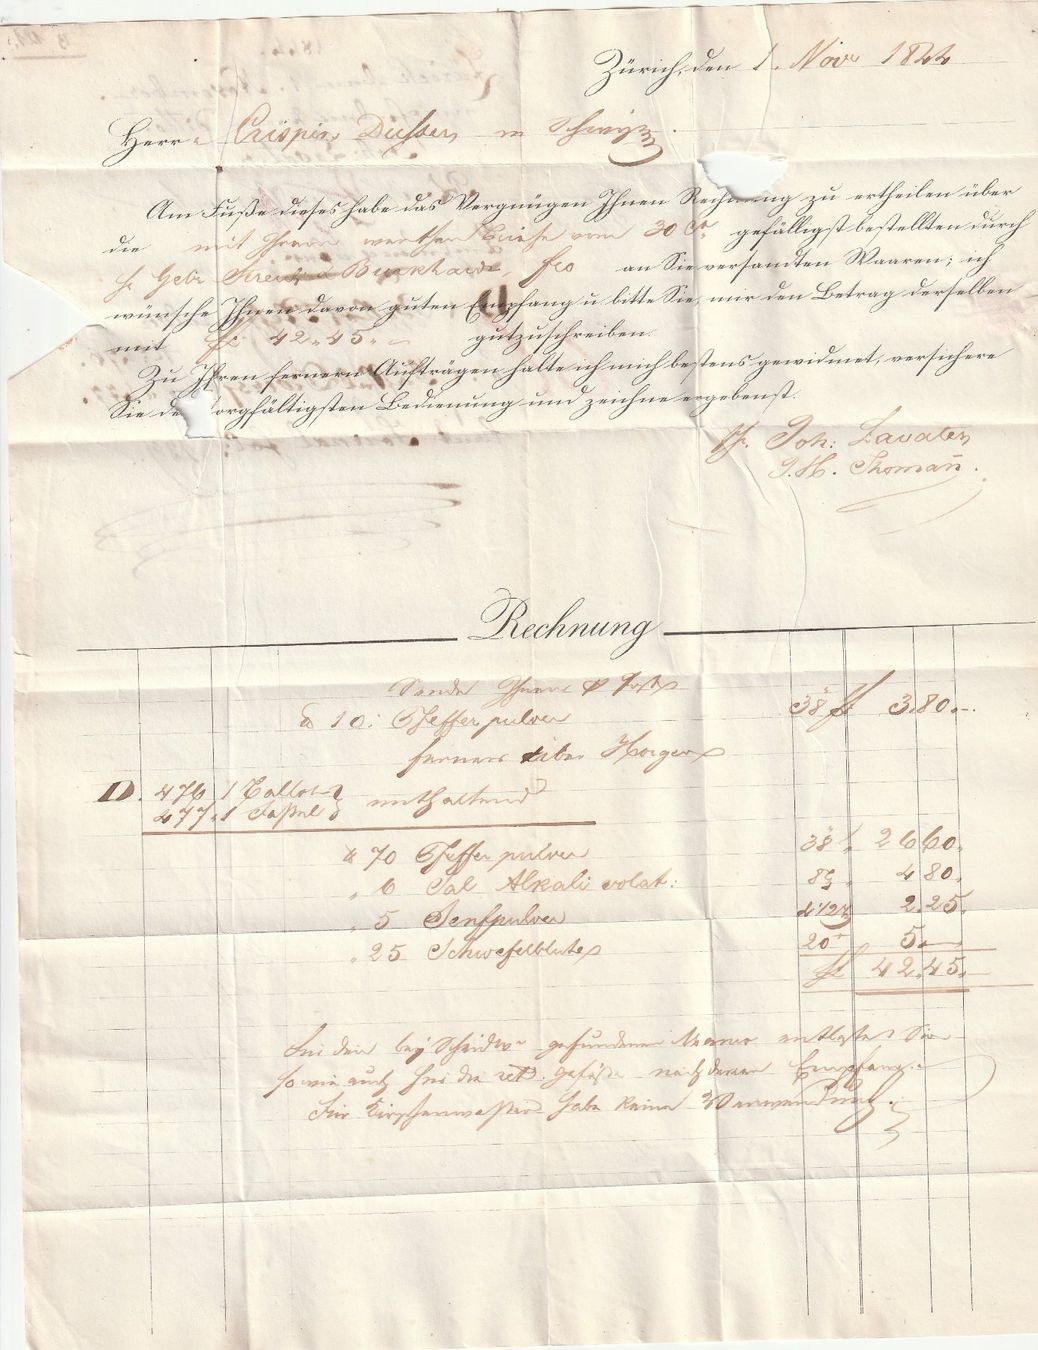 Zürich, den 1. Nov. 1844
Herrn Crispin Dusser in Schwyz.
Am Fuße dieses habe das Vergnügen Ihnen Rechnung zu ertheilen über
die mit Ihrem werthen Briefe vom 30 Ct. gefälligst bestellten durch
Gebr. & Burkhardt, fco an Sie versandten Waaren; ich
wünsche Ihnen davon guten Empfang u bitte Sie, mir den Betrag derselben
mit fl 42.45.- gutzuschreiben.
Zu Ihren fernern Aufträgen halte ich mich bestens gewidmet, versichere
Sie der sorgfältigsten Bedienung und zeichne ergebenst.
Joh: Lavater
J. H. Thomañ.
Rechnung
Sende Ihnen
10: Pfeffer pulver 38 fl 3.80.-
ferners über Horgen
D. 476 1 Ballot
477. 1 Fassel enthaltend
70 Pfeffer pulver 38 26 60.
„ 6 Sal Alkali volat: 4 80.
„ 5 Senfpulver 2.25.
„ 25 Schwefelblüthe 20 5.-
fl 42.45.-
bey gefundenen entlaste Sie
so wie auch für die ret. Gefäße nach deren Empfang.
Für Kirschenwasser habe keine Verwendung.